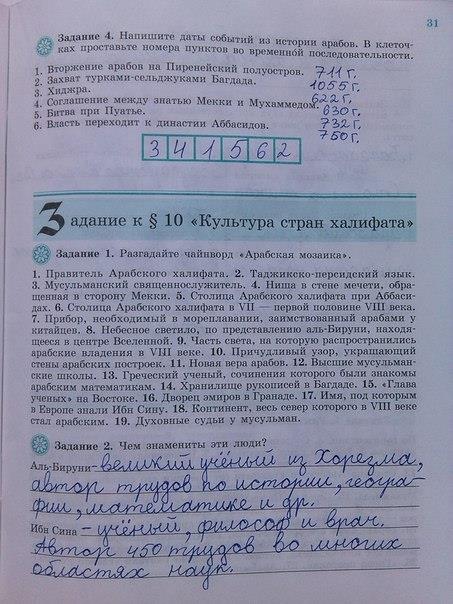 31
Задание 4. Напишите даты событий из истории арабов. В клеточ-
ках проставьте номера пунктов во временной последовательности.
1. Вторжение арабов на Пиренейский полуостров. 711 г.
2. Захват турками-сельджуками Багдада. 1055 г.
3. Хиджра. 622 г.
4. Соглашение между знатью Мекки и Мухаммедом. 630 г.
5. Битва при Пуатье. 732 г.
6. Власть переходит к династии Аббасидов. 750 г.
3 4 1 5 6 2
Задание к § 10 «Культура стран халифата»
Задание 1. Разгадайте чайнворд «Арабская мозаика».
1. Правитель Арабского халифата. 2. Таджикско-персидский язык.
3. Мусульманский священнослужитель. 4. Ниша в стене мечети, обра-
щенная в сторону Мекки. 5. Столица Арабского халифата при Аббаси-
дах. 6. Столица Арабского халифата в VII — первой половине VIII века.
7. Прибор, необходимый в мореплавании, заимствованный арабами у
китайцев. 8. Небесное светило, по представлению аль-Бируни, находя-
щееся в центре Вселенной. 9. Часть света, на которую распространились
арабские владения в VIII веке. 10. Причудливый узор, украшающий
стены арабских построек. 11. Новая вера арабов. 12. Высшие мусульман-
ские школы. 13. Греческий ученый, сочинения которого были знакомы
арабским математикам. 14. Хранилище рукописей в Багдаде. 15. «Глава
ученых» на Востоке. 16. Дворец эмиров в Гранаде. 17. Имя, под которым
в Европе знали Ибн Сину. 18. Континент, весь север которого в VIII веке
стал арабским. 19. Духовные судьи у мусульман.
Задание 2. Чем знамениты эти люди?
Аль-Бируни - великий учёный из Хорезма,
автор трудов по истории, геогра-
фии, математике и др.
Ибн Сина - учёный, философ и врач.
Автор 450 трудов во многих
областях наук.